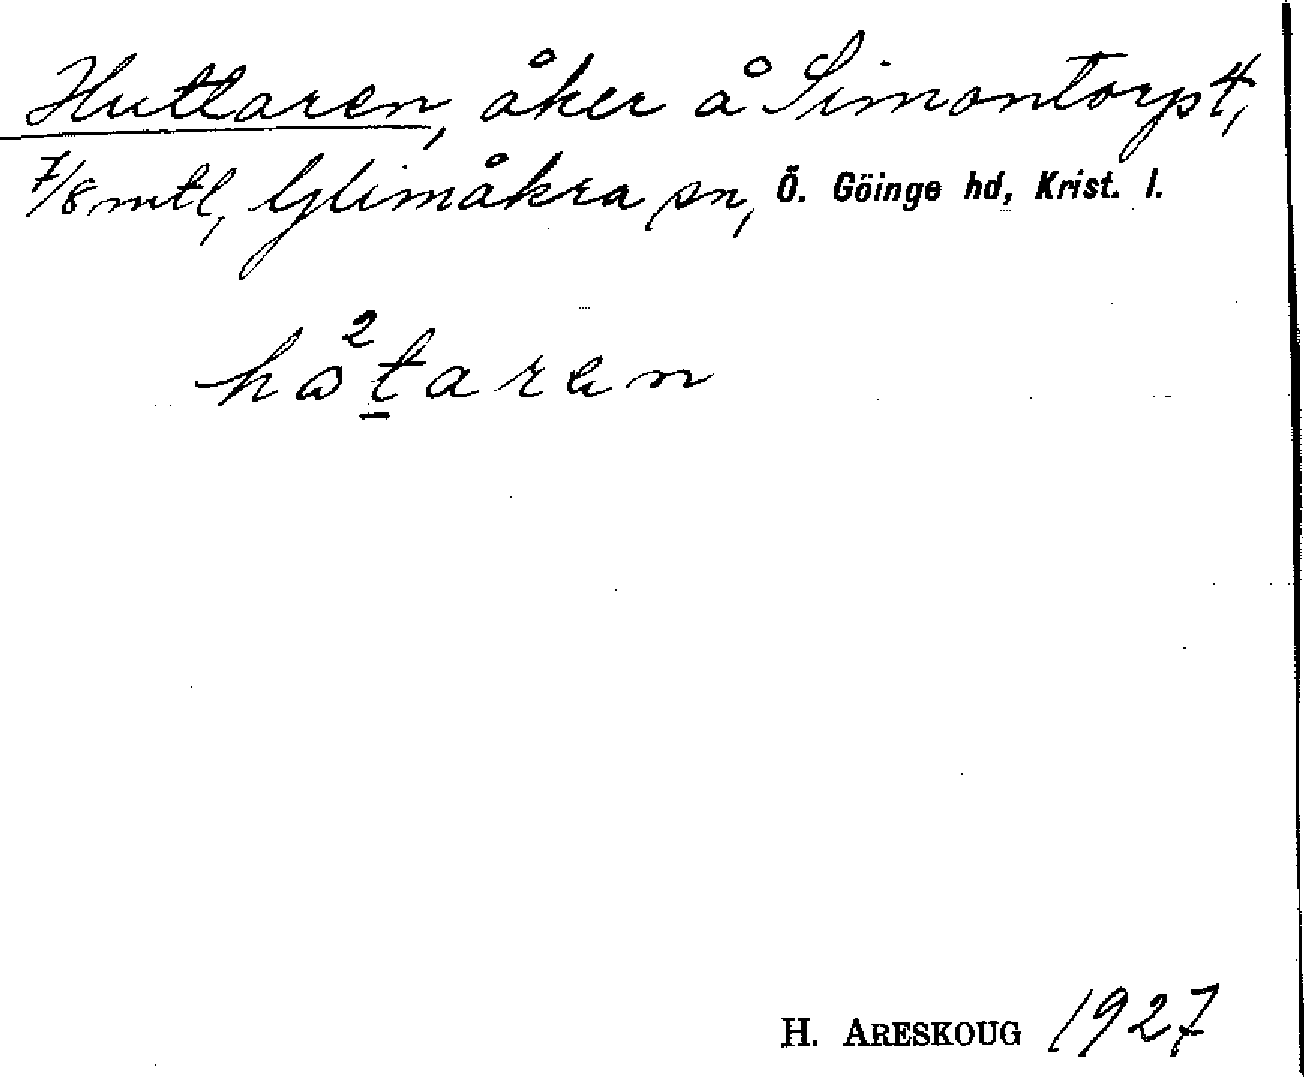 Huttaren, åker å Simontorp 4,
7/8 mtl, Glimåkra sn, Ö. Göinge hd, Krist. l.
hω²taren
H. ARESKOUG 1927